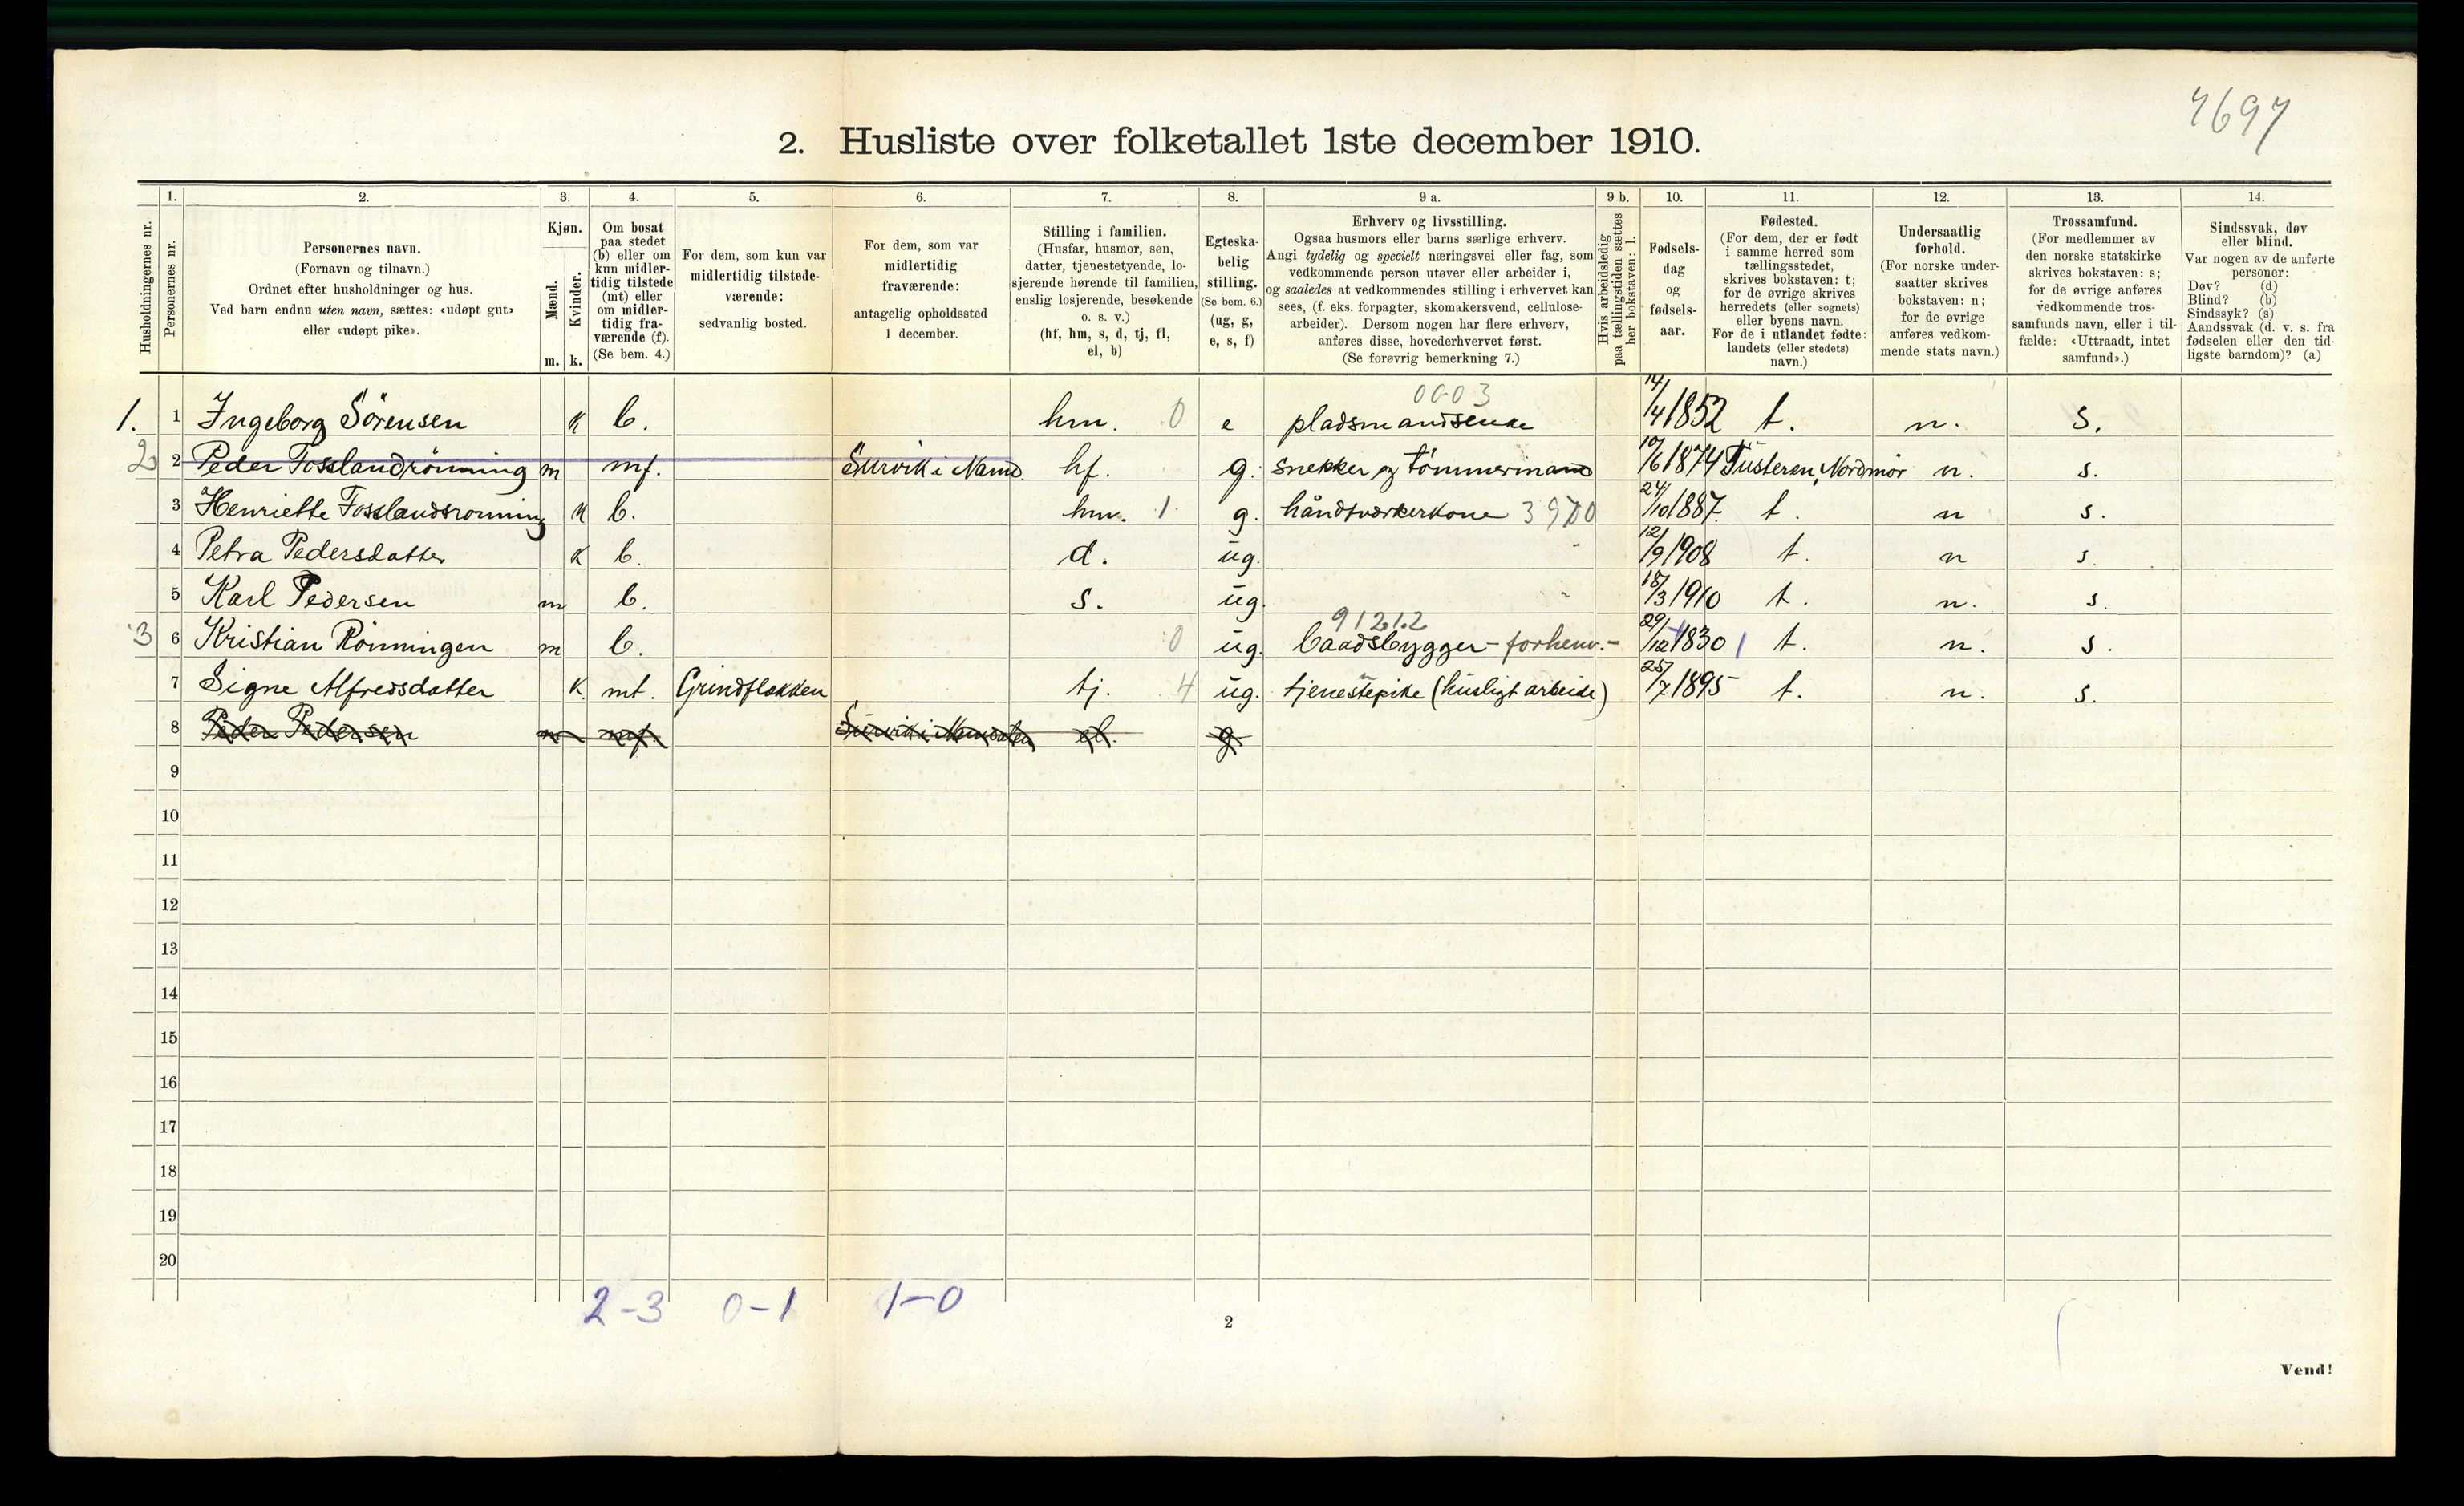 7697
2. Husliste over folketallet 1ste december 1910.
1. 2. 3. 4. 5. 6. 7. 8. 9 a. 9 b. 10. 11. 12. 13. 14.
Husholdningernes nr.
Personernes nr.
Personernes navn.
(Fornavn og tilnavn.)
Ordnet efter husholdninger og hus.
Ved barn endnu uten navn, sættes: «udøpt gut»
eller «udøpt pike».
Kjøn.
Mænd.
Kvinder.
m. k.
Om bosat
paa stedet
(b) eller om
kun midler-
tidig tilstede
(mt) eller
om midler-
tidig fra-
værende (f).
(Se bem. 4.)
For dem, som kun var
midlertidig tilstede-
værende:
sedvanlig bosted.
For dem, som var
midlertidig
fraværende:
antagelig opholdssted
1 december.
Stilling i familien.
(Husfar, husmor, søn,
datter, tjenestetyende, lo-
sjerende hørende til familien,
enslig losjerende, besøkende
o. s. v.)
(hf, hm, s, d, tj, fl,
el, b)
Egteska-
belig
stilling.
(Se bem. 6.)
(ug, g,
e, s, f)
Erhverv og livsstilling.
Ogsaa husmors eller barns særlige erhverv.
Angi tydelig og specielt næringsvei eller fag, som
vedkommende person utøver eller arbeider i,
og saaledes at vedkommendes stilling i erhvervet kan
sees, (f. eks. forpagter, skomakersvend, cellulose-
arbeider). Dersom nogen har flere erhverv,
anføres disse, hovederhvervet først.
(Se forøvrig bemerkning 7.)
Hvis arbeidsledig
paa tællingstiden sættes
her bokstaven: l.
Fødsels-
dag
og
fødsels-
aar.
Fødested.
(For dem, der er født
i samme herred som
tællingsstedet,
skrives bokstaven: t;
for de øvrige skrives
herredets (eller sognets)
eller byens navn.
For de i utlandet fødte:
landets (eller stedets)
navn.)
Undersaatlig
forhold.
(For norske under-
saatter skrives
bokstaven: n;
for de øvrige
anføres vedkom-
mende stats navn.)
Trossamfund.
(For medlemmer av
den norske statskirke
skrives bokstaven: s;
for de øvrige anføres
vedkommende tros-
samfunds navn, eller i til-
fælde: «Uttraadt, intet
samfund».)
Sindssvak, døv
eller blind.
Var nogen av de anførte
personer:
Døv? (d)
Blind? (b)
Sindssyk? (s)
Aandssvak (d. v. s. fra
fødselen eller den tid-
ligste barndom)? (a)
0003
1. 1 Ingeborg Sörensen k b. hm. 0 e pladsmandsenke 14/4 1852 t. n. s.
2 2 Peder Fosslandrönning m mf. Survik i Namd. hf. g. snekker og tömmermand 10/6 1874 Tusteren, Nordmör n. s.
3 Henriette Fosslandsrönning k b. hm. 1 g. håndtværkerkone 3970 24/10 1887. t. n s.
4 Petra Pedersdatter k b. d. ug. 12/9 1908 t. n s.
5 Karl Pedersen m b. s. ug. 18/3 1910 t. n. s.
91212
3 6 Kristian Rönningen m b. 0 ug. baadsbygger - forhenv. - 29/12 1830 t. n. s.
7 Signe Alfredsdatter k. mt. Grindflakken tj. 4 ug. tjenestepike (husligt arbeide) 25/7 1895 t. n. s.
8 Peder Pedersen m mf. Survik i Namdalen el. g
9
10
11
12
13
14
15
16
17
18
19
20
2-3 0-1 1-0
2
Vend!